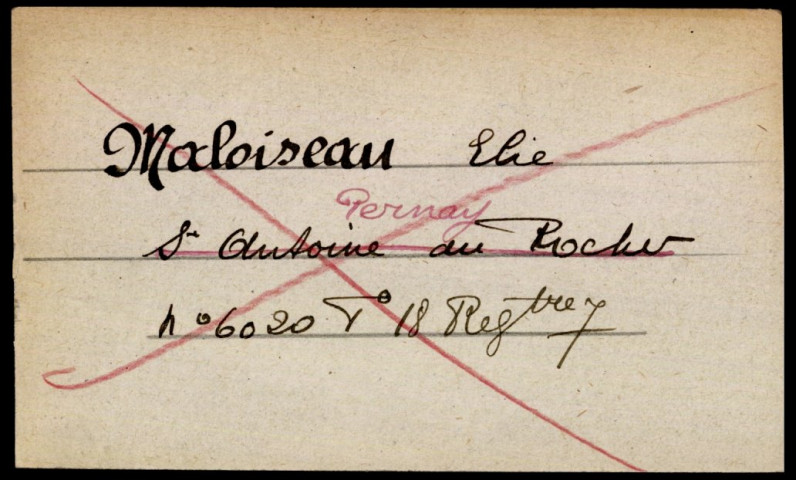 Maloiseau Elie
Pernay
St Antoine du Rocher
no 6020 Fo 18 Regtre 7